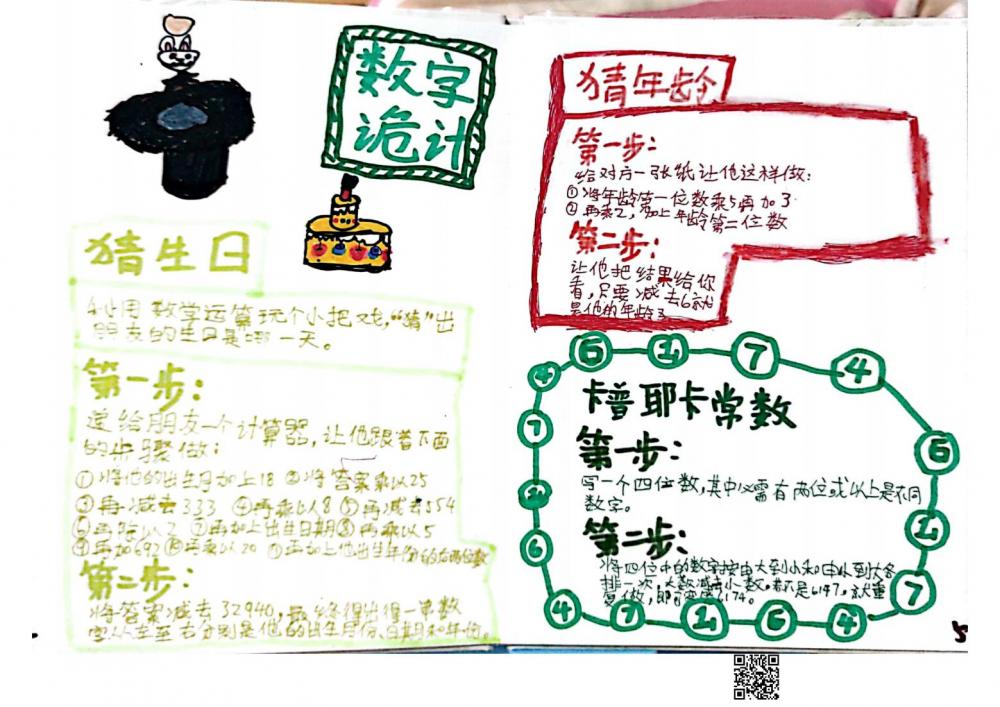 数字
诡计
猜生日
利用数学运算玩个小把戏,“猜”出
朋友的生日是哪一天。
第一步:
递给朋友一个计算器,让他跟着下面
的步骤做:
①将他的出生月加上18 ②将答案乘以25
③再减去333 ④再乘以8 ⑤再减去554
⑥再除以2 ⑦再加上出生日期⑧再乘以5
⑨再加692⑩再乘以20 ⑪再加上他出生年份的后两位数
第二步:
将答案减去32940,最终得出得一串数
字从左至右分别是他的出生月份、日期和年份。
猜年龄
第一步:
给对方一张纸让他这样做:
①将年龄第一位数乘5再加3
②再乘2,再加上年龄第二位数
第二步:
让他把结果给你
看,只要减去6就
是他的年龄了
6 1 7 4
6 1 7 4 6 1 7 4 6 1 7 4
卡普耶卡常数
第一步:
写一个四位数,其中必需有两位或以上是不同
数字。
第二步:
将四位中的数字按由大到小和由小到大各
排一次,大数减去小数,若不是6147,就重
复做,即可变成6174。
5